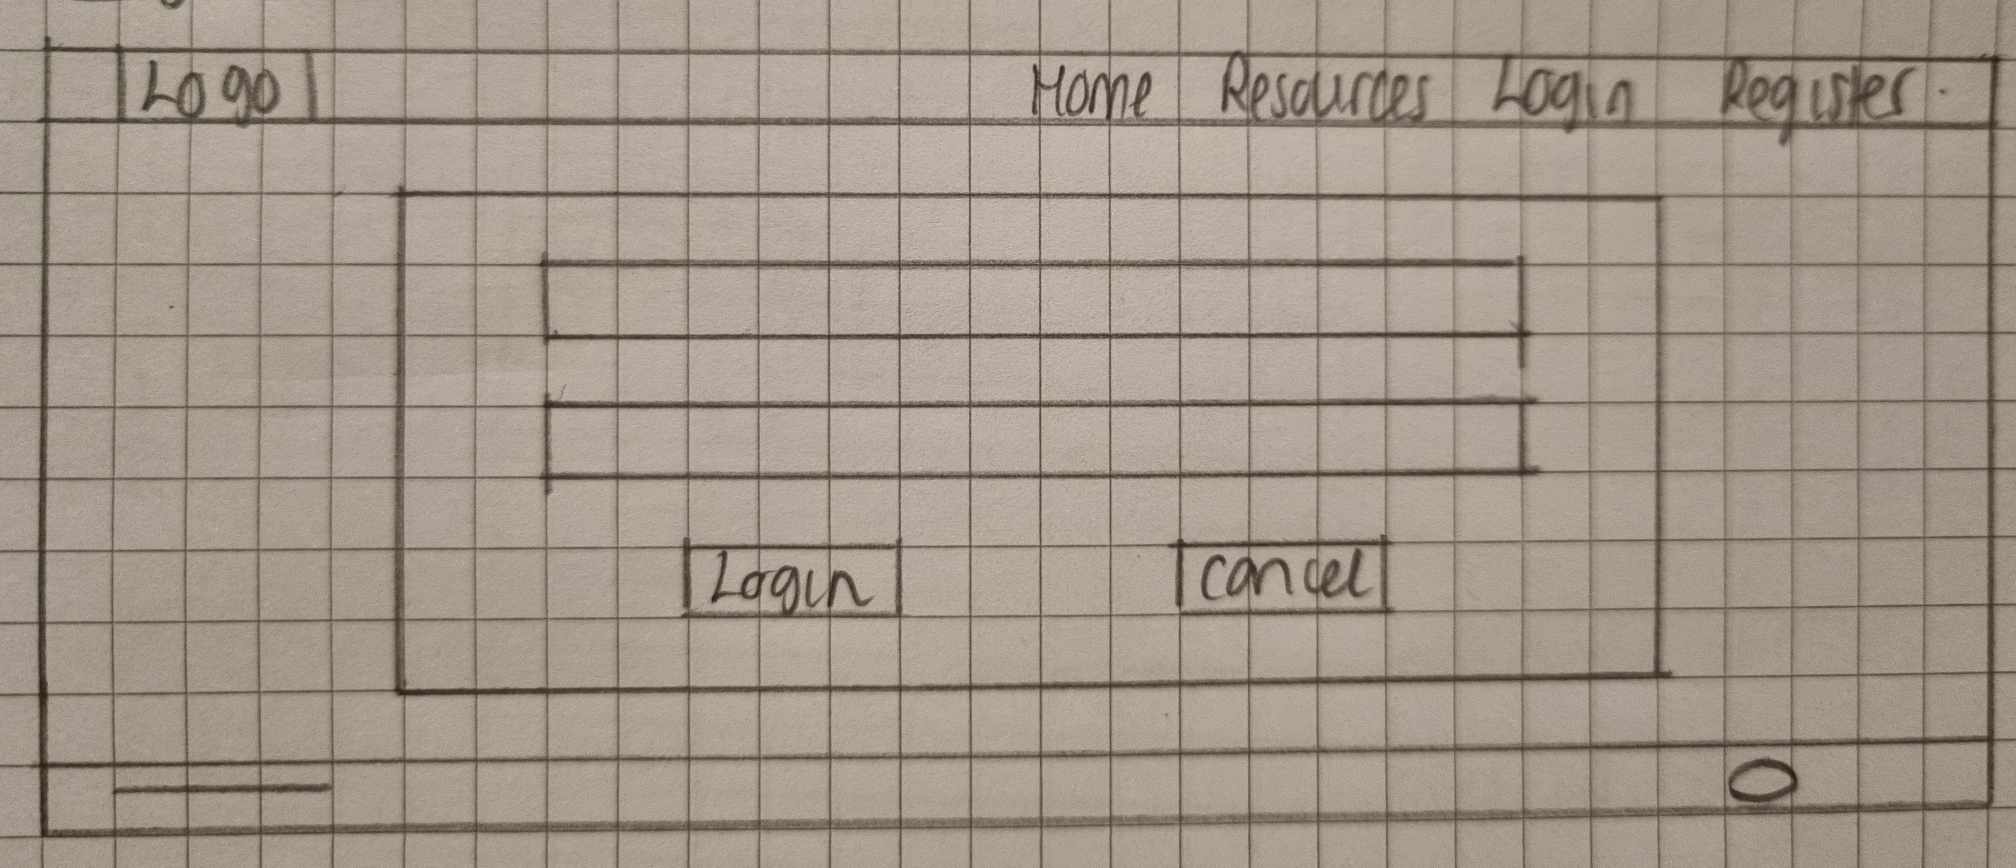 Logo Home Resources Login Register.
Login cancel